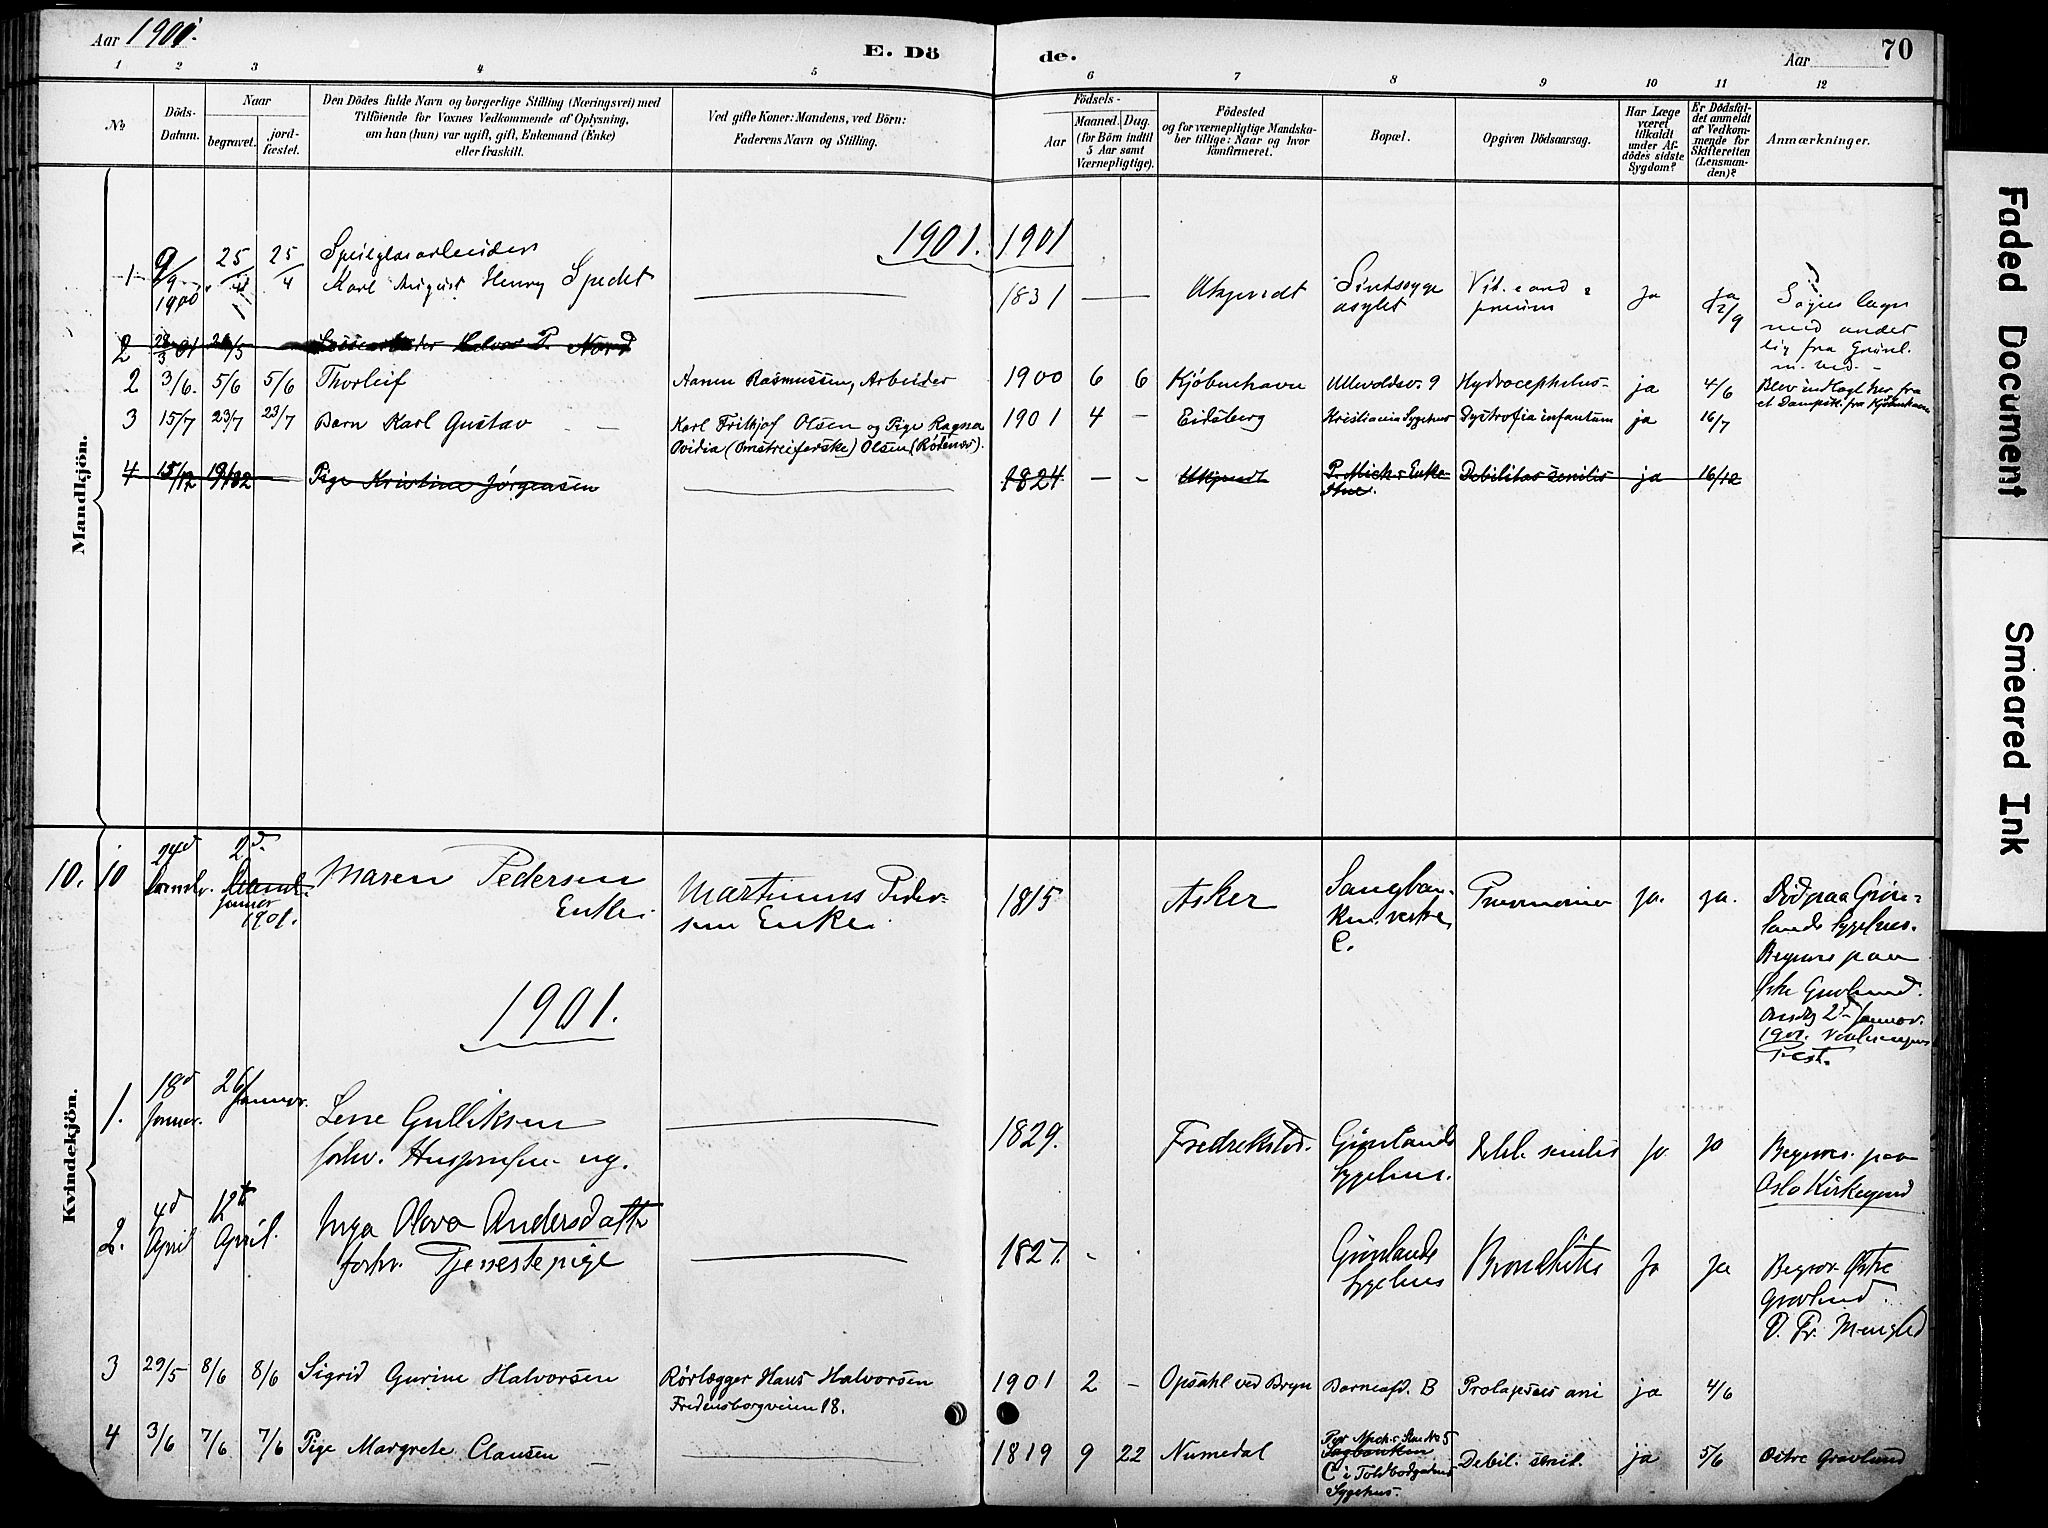 Aar 1901.
E. Dö
de.
Aar
70
1 2 3 4 5 6 7 8 9 10 11 12
No
Döds-Datum.
Naar
begravet.
jord-fæstet.
Den Dödes fulde Navn og borgerlige Stilling (Næringsvei) med
Tilföiende for Voxnes Vedkommende af Oplysning,
om han (hun) var ugift, gift, Enkemand (Enke)
eller fraskilt.
Ved gifte Koner: Mandens, ved Börn:
Faderens Navn og Stilling.
Födsels-
Aar
Maaned. Dag.
(for Börn indtil
5 Aar samt
Værnepligtige).
Födested
og for værnepligtige Mandska-
ber tillige: Naar og hvor
konfirmeret.
Bopæl.
Opgiven Dödsaarsag.
Har Læge
været
tilkaldt
under Af-
dödes sidste
Sygdom?
Er Dödsfal-
det anmeldt
af Vedkom-
mende for
Skifteretten
(Lensman-
den)?
Anmærkninger.
Mandkjön.
1901. 1901
1 9/9 1900 25/4 25/4 Speilglasarbeider
Karl August Henry Specht 1831 Ukjendt Sindssyge
asylet ja ja 12/9
med andet
lig fra Grönl.
2 28/3 01 Halvor P. Nord
2 3/6. 5/6 5/6 Thorleif Rasmussen, Arbeider 1900 6 6 Kjöbenhavn Ullevoldsv. 9 Hydrocephalus - ja 4/6 Blev indlagt her fra
et Dampsk. fra Kjöbenhavn
3 15/7 23/7 23/7 Barn Karl Gustav - Karl Fritkjof Olsen og Pige Ragna
Ovidia (Omstreiferske) Olsen (Rödenæs). 1901 4 - Eidsberg Kristiania Sygehus Dystrofia infantum ja 16/7
4 15/12 19/12 - Pige Kristine Jörgensen 1824 - - Ukjendt Enke
Stue. Debilitas senilis ja 16/12
Kvindekjön.
10. 10 24d 2d Januar 1901. Maren Pedersen
Enke. Martinus Peder-
sen Enke. 1815 Asker vestre
C. Pneumonia ja. ja. Död paa Grön-
lands Sygehus.
Begraves paa
Gravlund.
2d Januar
1901.
Præst.
1901.
1. 18d Januar. 26 Januar. Lene Gulliksen
forhv. ug. 1829. Fredrikstad. Grönlands
Sygehus. Debil. senilis ja ja Begraves paa
Oslo Kirkegaard
2. 4d April 12t April. Inga Olava Andersdatter
forhv. Tjenestepige 1827. - Grönlands
Sygehus Bronchitis ja ja Begrav. Østre
Gravlund.
3 29/5 8/6 8/6 Sigrid Gurine Halvorsen Rörlægger Hans Halvorsen
Fredensborgveien 18. 1901 2 - Opsahl ved Bryn Barneafd. B Prolapsus ani ja 4/6
4 3/6 7/6 7/6 Pige Margrete Clausen - 1819 9 22 Numedal Stue No 5
Sagbanken
C i Toldbodgadens
Sygehus. Debil. senil. ja 5/6 Østre Gravlund
Faded Document
Smeared Ink